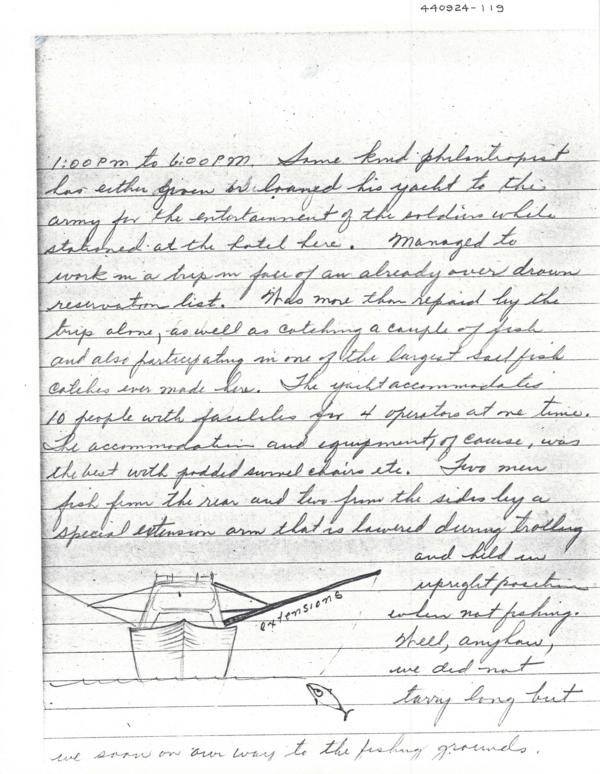 440924-119
1:00PM to 6:00PM. Some kind philantropist
has either given or loaned his yacht to the
army for the entertainment of the soldiers while
stationed at the hotel here. Managed to
work in a trip in face of an already over drawn
reservation list. Was more than repaid by the
trip alone, as well as catching a couple of fish
and also participating in one of the largest sail fish
catches ever made here. The yacht accommodates
10 people with facilities for 4 operators at one time.
The accommodation and equipment, of course, was
the best with padded swivel chairs etc. Two men
fish from the rear and two from the sides by a
special extension arm that is lowered during trolling
and held in
upright position
when not fishing.
Well, anyhow,
we did not
tarry long but
extensions
we soon on our way to the fishing grounds.